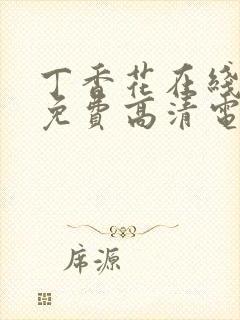 丁香花在綫
免費高清電
席源